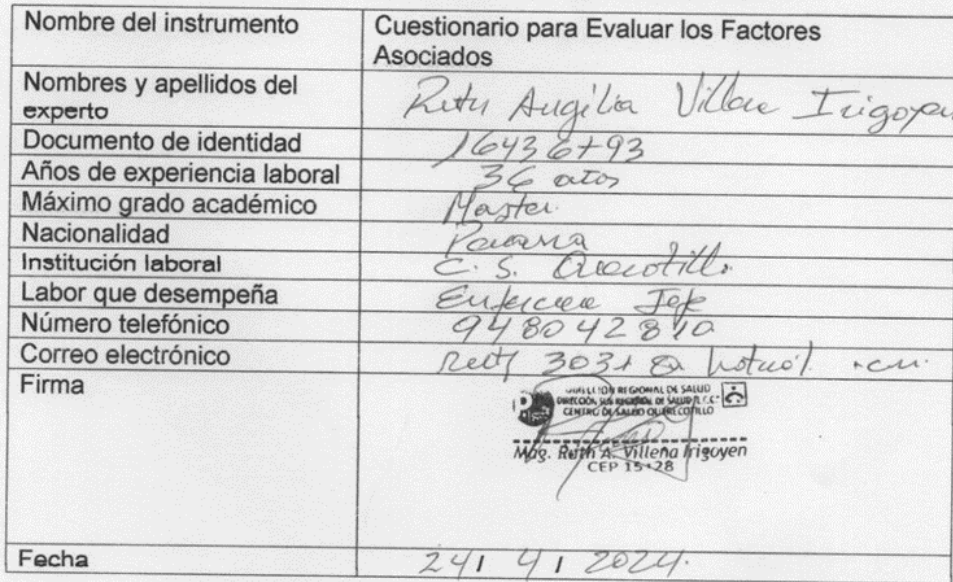 Nombre del instrumento Cuestionario para Evaluar los Factores
Asociados
Nombres y apellidos del
experto Ruth Augilia Villena Irigoyen
Documento de identidad 16436793
Años de experiencia laboral 36 años
Máximo grado académico Master
Nacionalidad Peruana
Institución laboral C. S. Querecotillo
Labor que desempeña Enfermera Jefe
Número telefónico 948042810
Correo electrónico
Firma
DIRECCIÓN REGIONAL DE SALUD
DIRECCIÓN SUB REGIONAL DE SALUD "L.C.C"
CENTRO DE SALUD QUERECOTILLO
Mag. Ruth A. Villena Irigoyen
CEP
Fecha 24 / 4 / 2024.